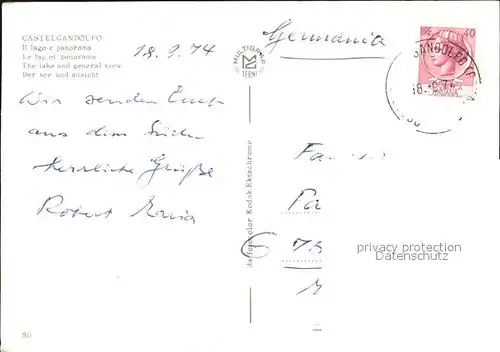 CASTELGANDOLFO
Il lago e panorama
Le lac et panorama
The lake and general view
Der see und ansicht
18.9.74
MULTIGRAF
TERNI
Germania
LIRE 40
GANDOLFO
18.-9.74
ITALIANA
Wir senden Euch
aus dem Süden
herrliche Grüße
Robert Maria
Kodak Ektachrome
Fa
Pa
privacy protection
Datenschutz
80